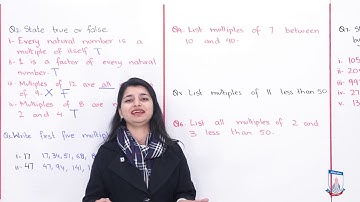 Q2: State true or false.
i- Every natural number is a
multiple of itself. T
ii- 1 is a factor of every natural
number. T
iii Multiples of 12 are all
of 9. X F
iv. Multiples of 8 are
2 and 4. T
Q: Write first five multip
i- 17 17, 34, 51, 68, 8
ii- 47 47, 94, 141, 1
Q4: List multiples of 7 between
10 and 40.
Q5 List multiples of 11 less than 50
Q6: List all multiples of 2 and
3 less than 50.
Q: St
by
i- 105
ii. 201
iii. 270
iv 13
v.